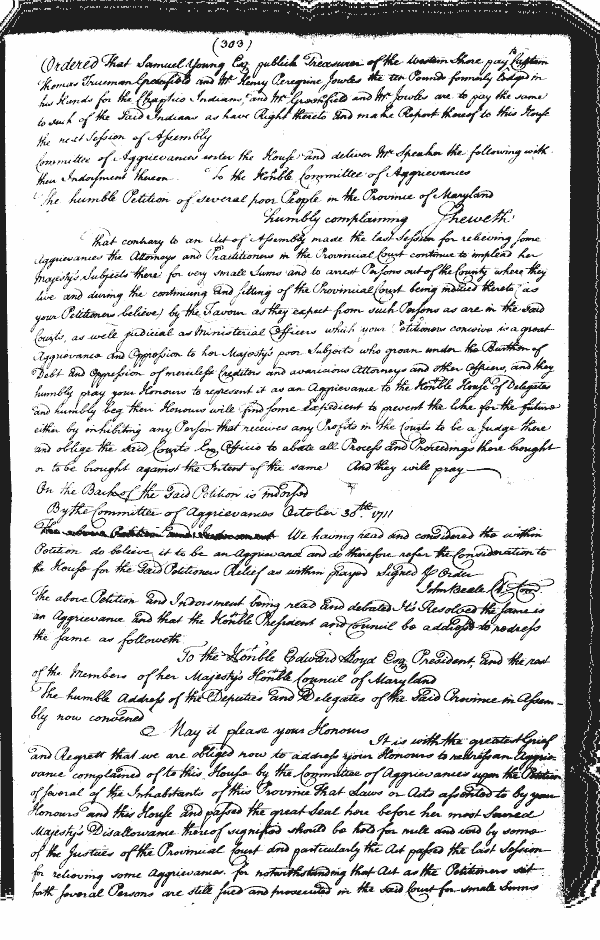 (303)
Ordered That Samuel Young Esq publick Treasurer of the Western Shore pay to Captain
Thomas Trueman Greenfield and Mr Henry Peregine Jowles the ten Pounds formerly lodged in
his Hands for the Chaptico Indians, and Mr Greenfield and Mr Jowles are to pay the same
to such of the said Indians as have Right thereto and make Report thereof to this House
the next Session of Assembly
Committee of Aggrievances enter the House and deliver Mr Speaker the following with
their Indorsment thereon To the Honble Committee of Aggrievances
The humble Petition of several poor People in the Province of Maryland
humbly complaining Sheweth
That contrary to an Act of Assembly made the last Session for relieving some
Aggrievances the Attorneys and Practitioners in the Provincial Court continue to implead her
Majesty's Subjects there for very small Sums and to arrest Persons out of the County where they
live and during the continuing and sitting of the Provincial Court being induced thereto (as
your Petitioners believe) by the Favour as they expect from such Persons as are in the said
Courts, as well judicial as Ministerial Officers which your Petitioners conceive is a great
Aggrievance and Oppression to her Majesty's poor Subjects who groan under the Burthen of
Debt and Oppression of merciless Creditors and avaricious Attorneys and other Officers, and they
humbly pray your Honours to represent it as an Aggrievance to the Honble House of Delegates
and humbly beg their Honours will find some Expedient to prevent the like for the future
either by inhibiting any Person that receives any Profits in the Courts to be a Judge there
and oblige the said Courts Ex Officio to abate all Process and Proceedings there brought
or to be brought against the Intent of the same And they will pray
On the Back of the said Petition is indorsed
By the Committee of Aggrievances October 30th 1711
The above Petition and Indorsment We having read and considered the within
Petition do believe it to be an Aggrievance and do therefore refer the Consideration to
the House for the said Petitioners Relief as within prayed Signed P Order
John Beale Cl Com
The above Petition and Indorsment being read and debated It's Resolved the same is
an Aggrievance and that the Honble President and Council be addressed to redress
the same as followeth
To the Honble Edward Lloyd Esq President and the rest
of the Members of her Majesty's Honble Council of Maryland
The humble Address of the Deputies and Delegates of the said Province in Assem-
bly now convened
May it please your Honours
It is with the greatest Grief
and Regrett that we are obliged now to address your Honours to redress an Aggrie-
vance complained of to this House by the Committee of Aggrievances upon the Petition
of several of the Inhabitants of this Province that Laws or Acts assented to by your
Honours and this House and passed the great Seal here before her most Sacred
Majesty's Disallowance thereof signified should be held for null and void by some
of the Justices of the Provincial Court and particularly the Act passed the last Session
for relieving some Aggrievances. for notwithstanding that Act as the Petitioners set
forth several Persons are still sued and prosecuted in the said Court for small Sums